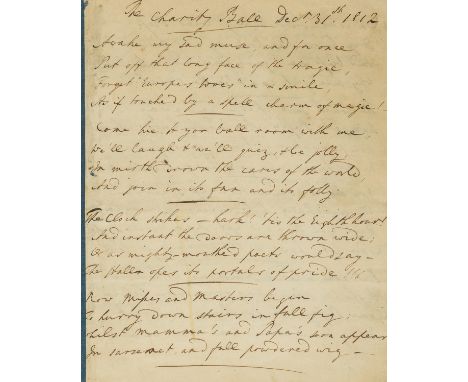 The Charity Ball Decr 31.th 1812
Awake, my sad muse, and for once
Put off that long face of the tragic,
Forget "Europe's woes" in a smile,
As if touched by a spell charm of magic!
Come hie to yon ball room with me
We'll laugh & we'll quiz, & be jolly,
In mirth drown the cares of the world,
And join in its fun and its folly.
The Clock strikes – hark! 'tis the Eighth hour!
And instant the doors are thrown wide;
Or as mighty-mouthed poets would say –
The Hall opes its portals of pride!!!
Now Misses and Masters begin
To hurry down stairs in full fig;
Whilst Mamma's and Papa's soon appear
In sarsenet and full powdered wig –